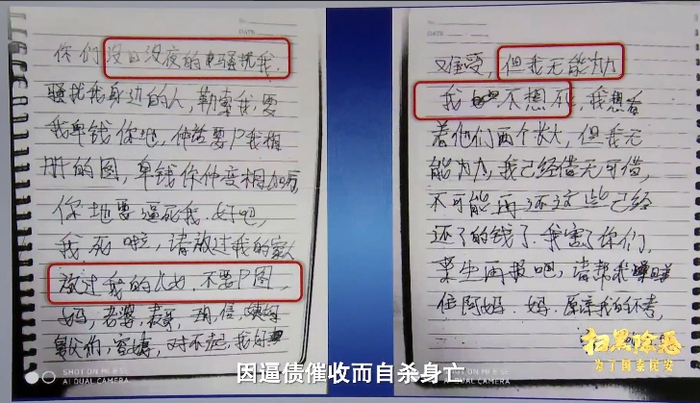 DATE
你们没日没夜的 骚扰我.
骚扰我身边的人,勒索我,要
我卑钱你地,仲话要P我相
册的图,卑钱你仲变相加
你地要逼死我.好吧,
我死啦,请放过我的家人
放过我的儿女.不要P图,
妈,老婆,表哥, 姨妈
舅父们, 对不起,我好
DATE
难受,但我无能为力
我 不想死,我想看
着他们两个长大,但我无
能为力,我已经借无可借,
不可能再还这些已经
还了的钱了.我害了你们,
来生再报吧,请帮我
住阿妈.妈.原谅我的不孝,
SHOT ON MI 8 SE
AI DUAL CAMERA
SHOT ON MI 8 SE
AI DUAL CAMERA
因逼债催收而自杀身亡
扫黑除恶
为了国泰民安